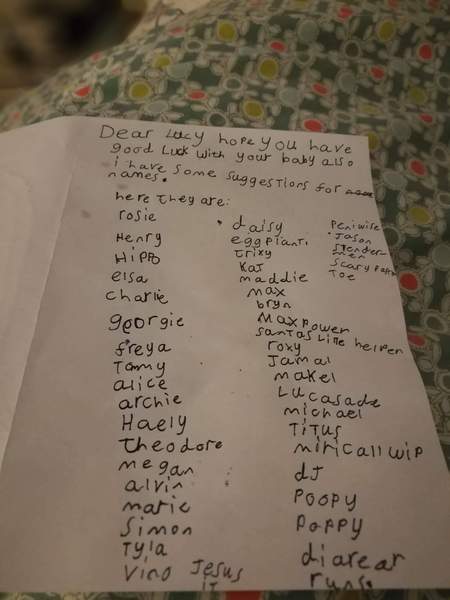 Dear Lucy hope you have
good luck with your baby also
i have some suggestions for
names.
here they are:
rosie
Henry
Hippo
elsa
charlie
georgie
freya
Tammy
alice
archie
Haely
theodore
megan
alvin
matic
Simon
Tyla
Vino Jesus
IT
daisy
eggplant
trixy
Kat
maddie
max
bryn
Max power
Santas Little helper
roxy
Jamal
makel
Lucasade
michael
TiTUS
miricall wip
dJ
Poopy
Poppy
diarear
runs
Peniwise
Jason
Slender
men
Scary
Toe